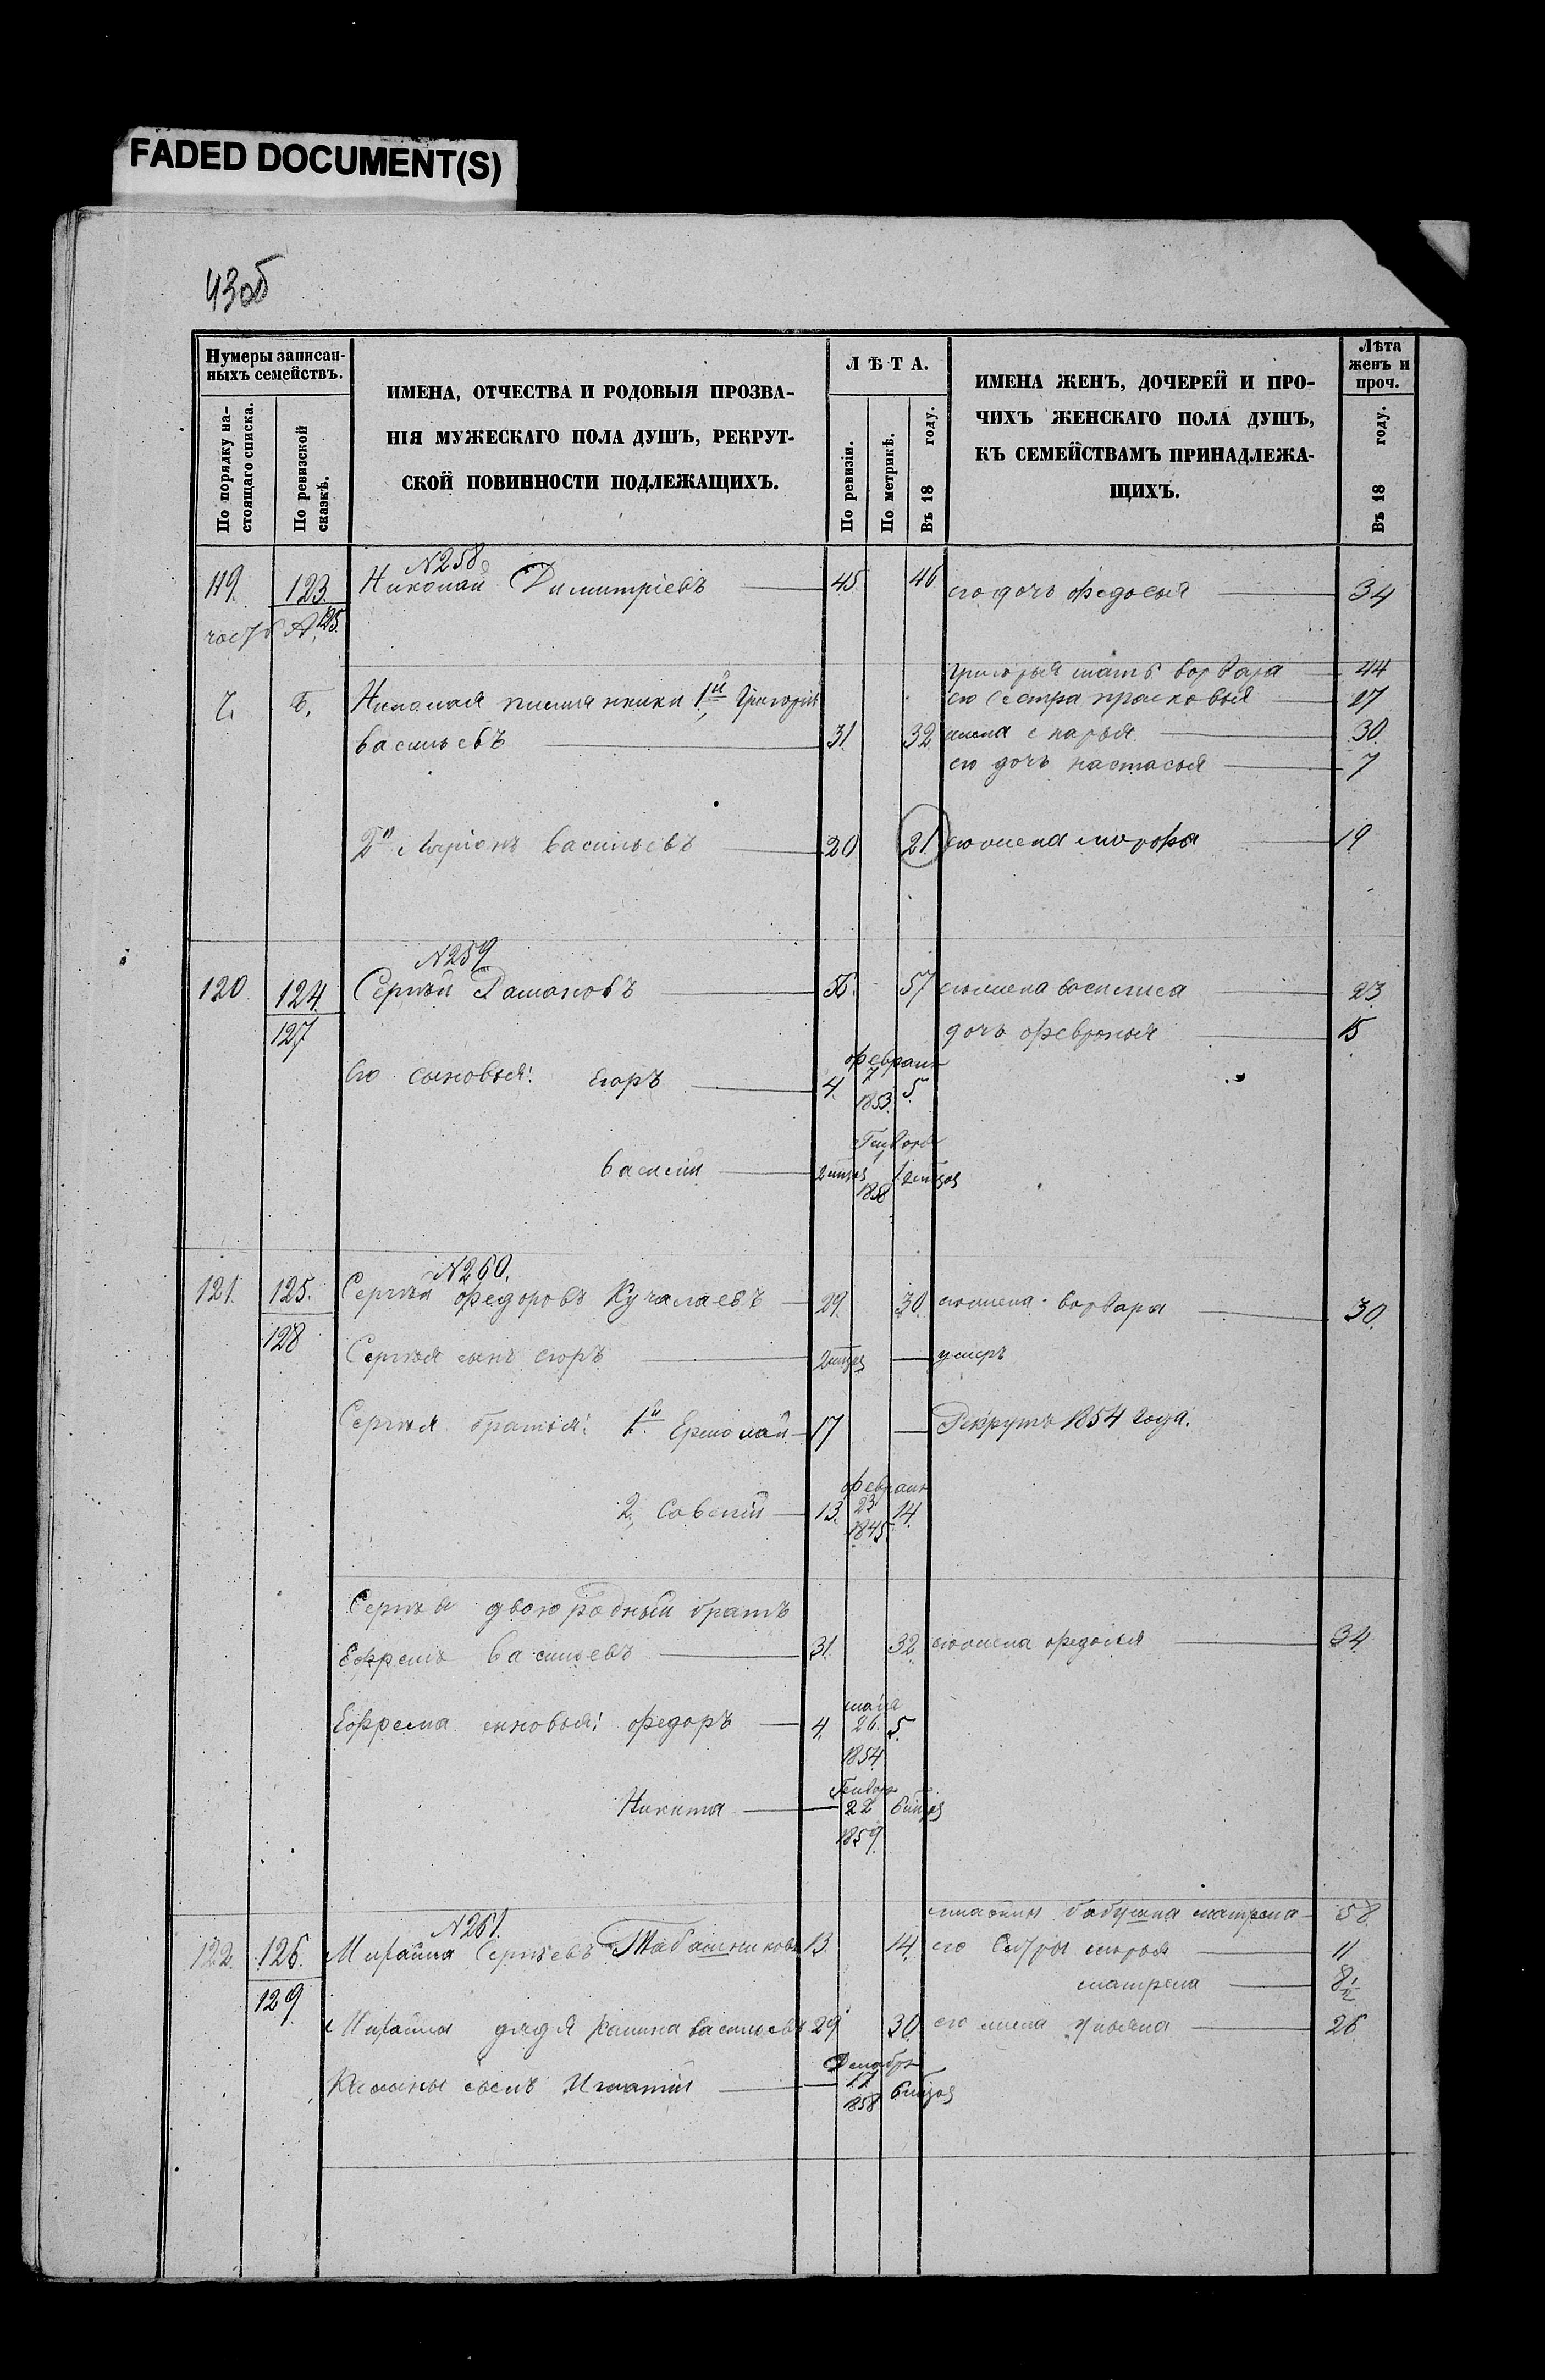 FADED DOCUMENT(S)
43об
Нумеры записан-
ныхъ семействъ.
По порядку на-
стоящаго списка.
По ревизской
сказкѣ.
ИМЕНА, ОТЧЕСТВА И РОДОВЫЯ ПРОЗВА-
НІЯ МУЖЕСКАГО ПОЛА ДУШЪ, РЕКРУТ-
СКОЙ ПОВИННОСТИ ПОДЛЕЖАЩИХЪ.
ЛѢТА.
По ревизіи.
По метрикѣ.
Въ 18 году.
ИМЕНА ЖЕНЪ, ДОЧЕРЕЙ И ПРО-
ЧИХЪ ЖЕНСКАГО ПОЛА ДУШЪ,
КЪ СЕМЕЙСТВАМЪ ПРИНАДЛЕЖА-
ЩИХЪ.
Лѣта
женъ и
проч.
Въ 18 году.
N258
119. 123. Николай Димитріевъ 45 46 его дочь федосья 34
часть А, 125.
Григорья мать варвара 44
Ч. Б. Николая племянники 1й Григорій его сестра прасковья 17
васильевъ 31 32 жена марья 30
его дочь настасья 7
2й Ларіонъ васильевъ 20 21 его жена марфа 19
N259
120 124. Сергѣй Рамановъ 56. 57 его жена василиса 23
127 дочь февронья 15
Его сыновья: Егоръ 4. февраля 7 1853. 5.
василій 2 мцѣя Генваря 1858 1 2 мцѣя
N260.
121. 125. Сергѣй федоровъ Кучалаевъ 29. 30. его жена варвара 30.
128 Сергѣя сынъ егоръ 2 мцѣя умеръ
Сергѣя братья: 1й Ермолай 17 Рекрутъ 1854 года.
2, Савелій 13. февраля 23 1845. 14.
Сергѣя двоюродный братъ
Ефремъ васильевъ 31. 32 его жена федосья 34
Ефрема сыновья: федоръ 4. мая 26. 1854 5.
Никита Генваря 22 1859 6 мцѣя
бабушка матрена 58
N261.
122. 126. Михайла Сергѣевъ Табашниковъ 13. 14. его сестры марья 11
129 матрена 8½
Михайлы дядя Калина васильевъ 29 30. его жена ульяна 26
Калины сынъ Игнатій Декабря 17 1858 6 мцѣя